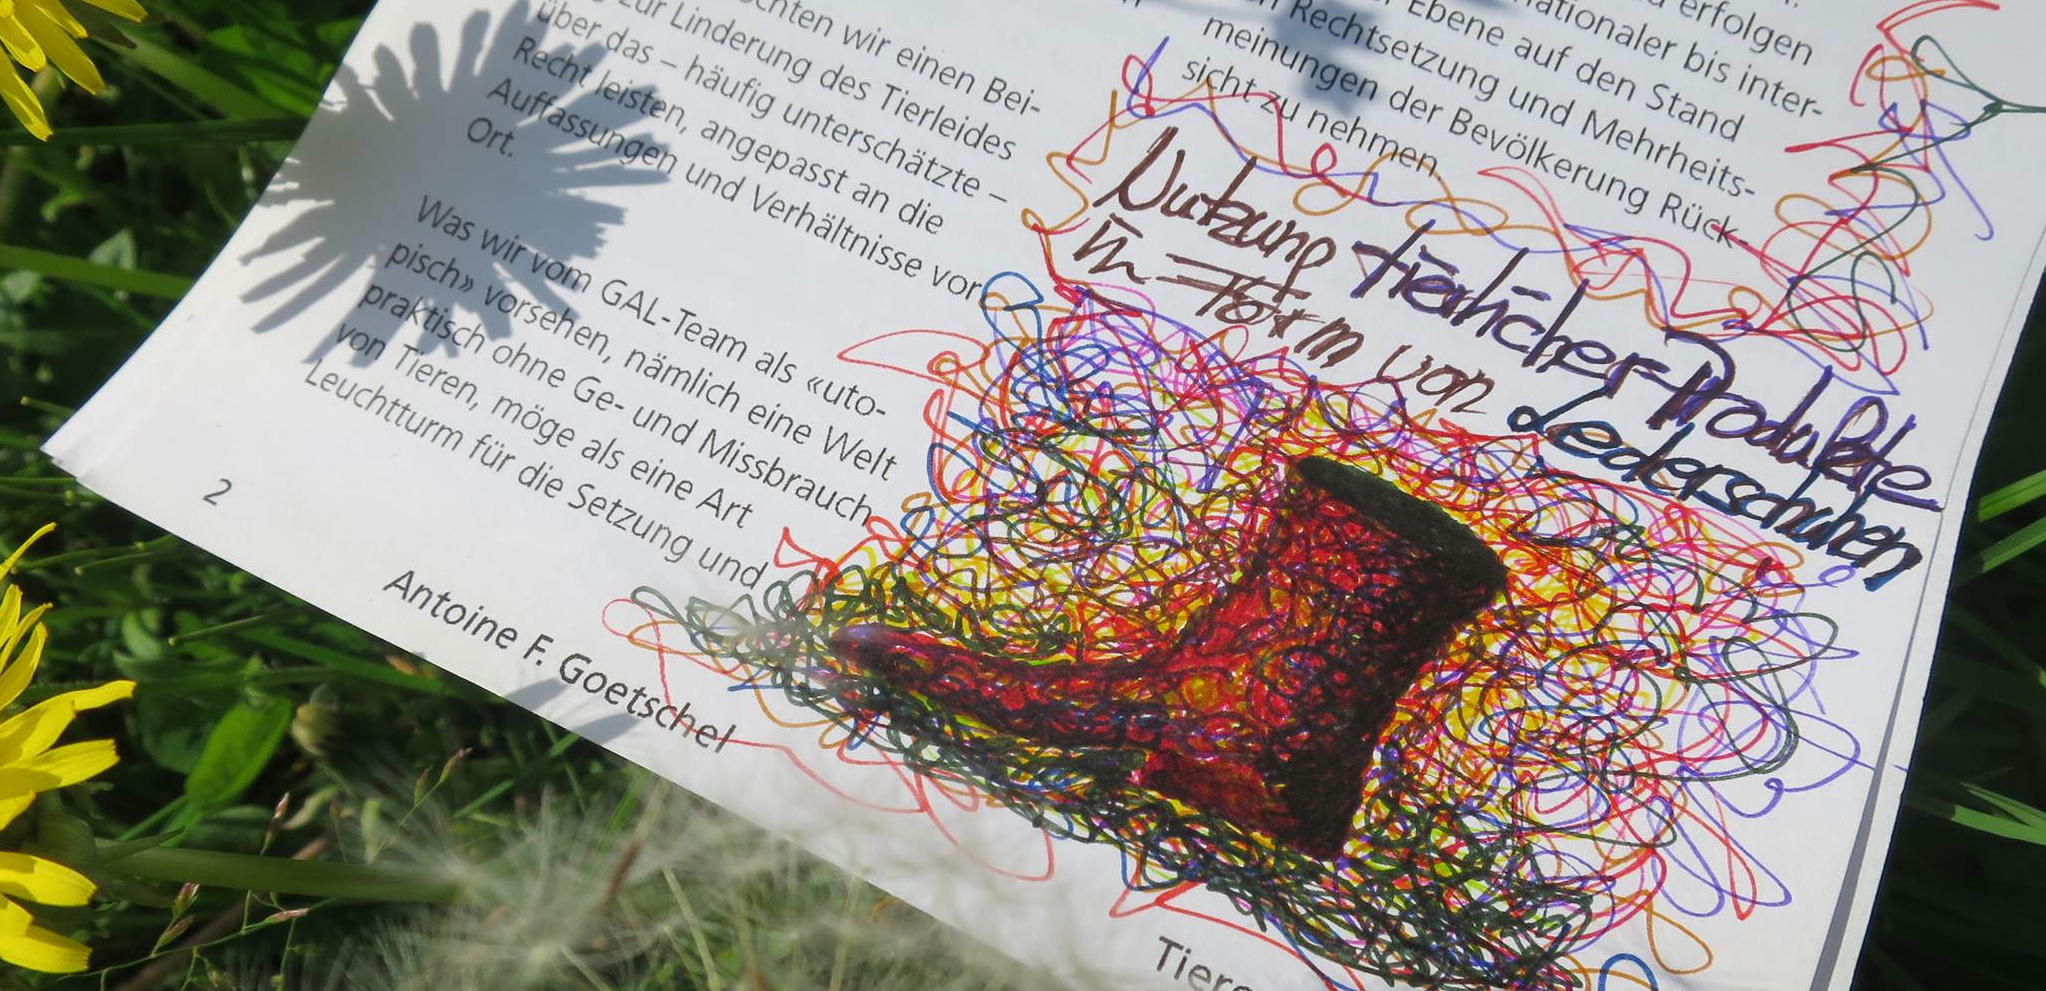 chten wir einen Bei-
zur Linderung des Tierleides
über das – häufig unterschätzte –
Recht leisten, angepasst an die
Auffassungen und Verhältnisse vor
Ort.
Was wir vom GAL-Team als «uto-
pisch» vorsehen, nämlich eine Welt
praktisch ohne Ge- und Missbrauch
von Tieren, möge als eine Art
Leuchtturm für die Setzung und
2
Antoine F. Goetschel
erfolgen
nationaler bis inter-
Ebene auf den Stand
Rechtsetzung und Mehrheits-
meinungen der Bevölkerung Rück-
sicht zu nehmen.
Nutzung tierlicher Produkte
in Form von Lederschuhen
Tiers